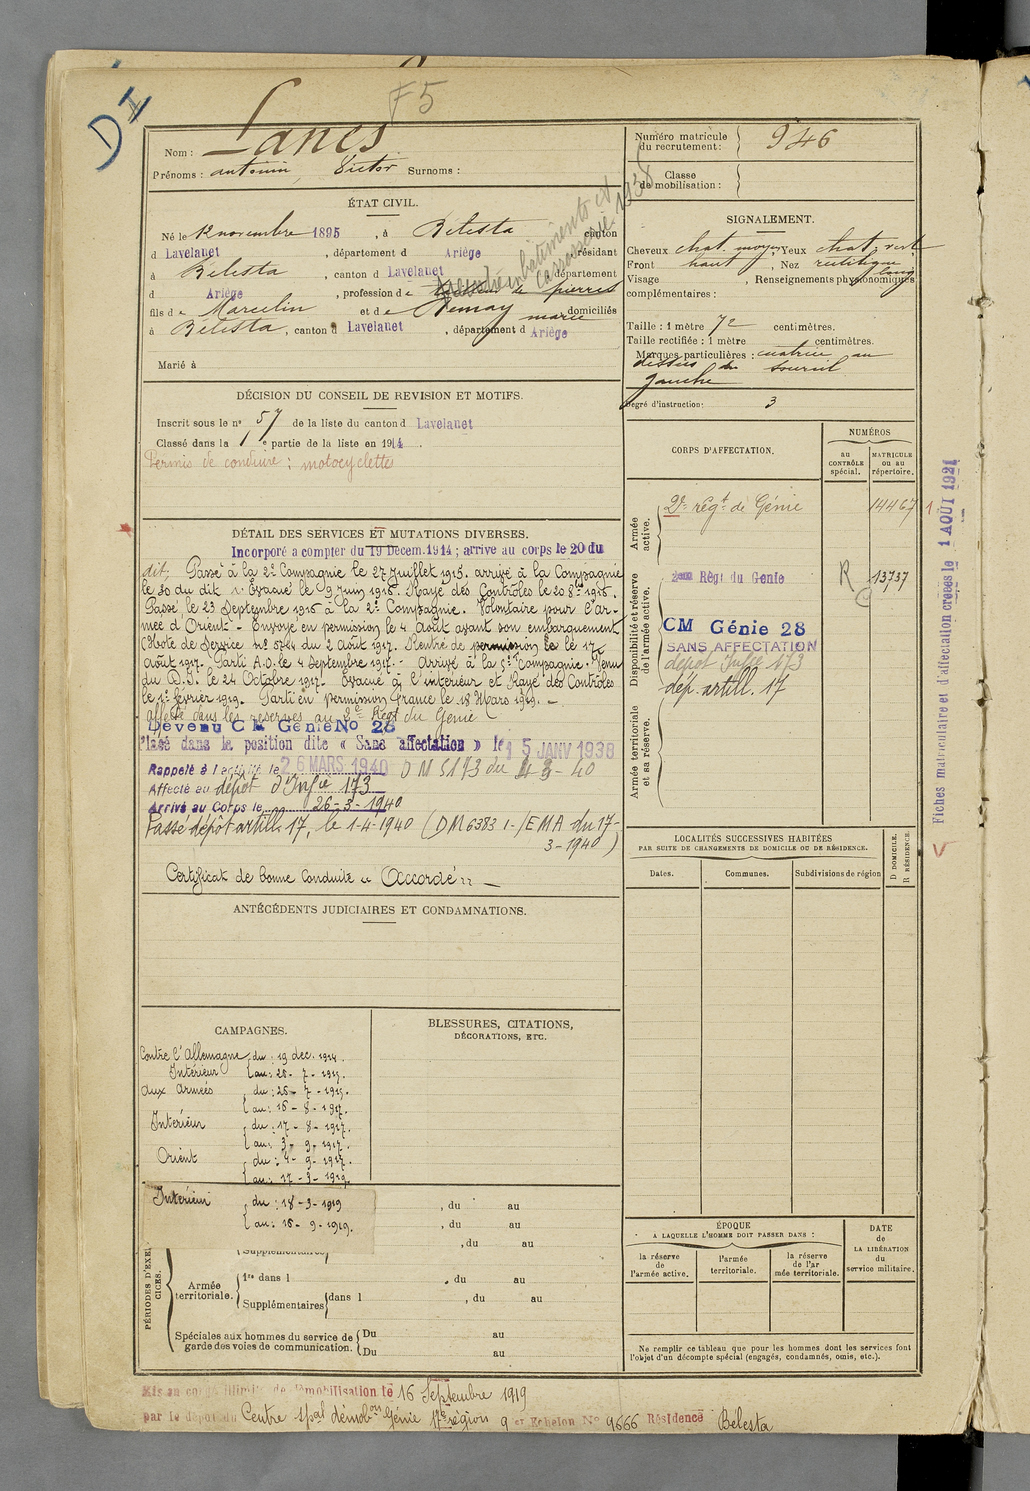 DI
F5
Nom : Lanes
Prénoms : antonin, Victor Surnoms :
Numéro matricule du recrutement : 946
Classe de mobilisation :
ÉTAT CIVIL.
Né le 12 novembre 1895, à Bélesta canton
d Lavelanet, département d Ariège résidant
à Bélesta, canton d Lavelanet département
d Ariège, profession de tailleur de pierres
bâtiments et
carrosserie. 1938
fils de Marcelin et de Demay marie domiciliés
à Bélesta, canton d Lavelanet, département d Ariège
Marié à
SIGNALEMENT.
Cheveux chat. moyen Yeux chat; vert
Front haut, Nez rectiligne
Visage long, Renseignements physionomiques
complémentaires :
Taille : 1 mètre 72 centimètres.
Taille rectifiée : 1 mètre centimètres.
Marques particulières : cicatrice au
dessus du sourcil
gauche
Degré d'instruction : 3
DÉCISION DU CONSEIL DE REVISION ET MOTIFS.
Inscrit sous le n° 57 de la liste du canton d Lavelanet
Classé dans la 1e partie de la liste en 1914.
Permis de conduire : motocyclettes
DÉTAIL DES SERVICES ET MUTATIONS DIVERSES.
Incorporé a compter du 19 Decem. 1914 ; arrive au corps le 20 du
dit. Passé à la 2e Compagnie le 27 Juillet 1915. arrivé à la Compagnie
le 30 du dit. Evacué le 9 Juin 1916. Rayé des Contrôles le 20 8bre 1916.
Passé le 23 Septembre 1916 à la 2e Compagnie. Volontaire pour l'ar-
mée d'Orient. - Envoyé en permission le 4 Août avant son embarquement
(Note de Service n° 5724 du 2 août 1917. Rentré de permission le 17
août 1917. Parti A.O. le 4 Septembre 1917. - Arrivé à la 5e Compagnie. Venu
du D.I. le 24 Octobre 1917. Evacué à l'intérieur et Rayé des Contrôles
le 1er février 1919. Parti en permission France le 18 Mars 1919. -
affecté dans les réserves au 2e Régt du Génie
Devenu C M Génie No 28
Placé dans la position dite « Sans affectation » le 15 JANV 1938
Rappelé à l'activité le 26 MARS 1940 DM 5173 du 4-3-40
Affecté au dépôt d'Infie 173
Arrivé au Corps le 26-3-1940
Passé dépôt artill. 17, le 1-4-1940 (DM 6383 1-/EMA du 17-
3-1940)
Certificat de bonne conduite « Accordé » -
CORPS D'AFFECTATION.
NUMÉROS
au CONTRÔLE spécial.
MATRICULE ou au répertoire.
Armée active.
2e régt de Génie 14467
Disponibilité et réserve de l'armée active.
2eme Régt du Genie R 13737
CM Génie 28
SANS AFFECTATION
dépôt Infie 173
dép. artill. 17
Armée territoriale et sa réserve.
Fiches matriculaire et d'affectation creées le 1 AOUT 1921
LOCALITÉS SUCCESSIVES HABITÉES
PAR SUITE DE CHANGEMENTS DE DOMICILE OU DE RÉSIDENCE.
Dates.
Communes.
Subdivisions de région
D DOMICILE.
R RÉSIDENCE.
ANTÉCÉDENTS JUDICIAIRES ET CONDAMNATIONS.
CAMPAGNES.
Contre l'Allemagne du : 19 dec. 1914.
Intérieur au : 28 - 7 - 1915.
Aux Armées du : 28 - 7 - 1915.
au : 16 - 8 - 1917.
Intérieur du : 17 - 8 - 1917.
au : 3 - 9 - 1917.
Orient du : 4 - 9 - 1917.
au : 17 - 3 - 1919.
Intérieur du : 18 - 3 - 1919
au : 16 - 9 - 1919.
BLESSURES, CITATIONS,
DÉCORATIONS, ETC.
, du au
, du au
Supplémentaires , du au
PÉRIODES D'EXERCICES.
Armée territoriale.
1re dans l , du au
Supplémentaires dans l , du au
Spéciales aux hommes du service de garde des voies de communication.
Du au
Du au
ÉPOQUE
A LAQUELLE L'HOMME DOIT PASSER DANS :
la réserve de l'armée active.
l'armée territoriale.
la réserve de l'armée territoriale.
DATE de LA LIBÉRATION du service militaire.
Ne remplir ce tableau que pour les hommes dont les services font
l'objet d'un décompte spécial (engagés, condamnés, omis, etc.).
Mis en congé illimité de démobilisation le 16 Septembre 1919
par le dépôt du Centre spal démobon Génie 17e région 9 er Echelon No 9666 Résidence Bélesta